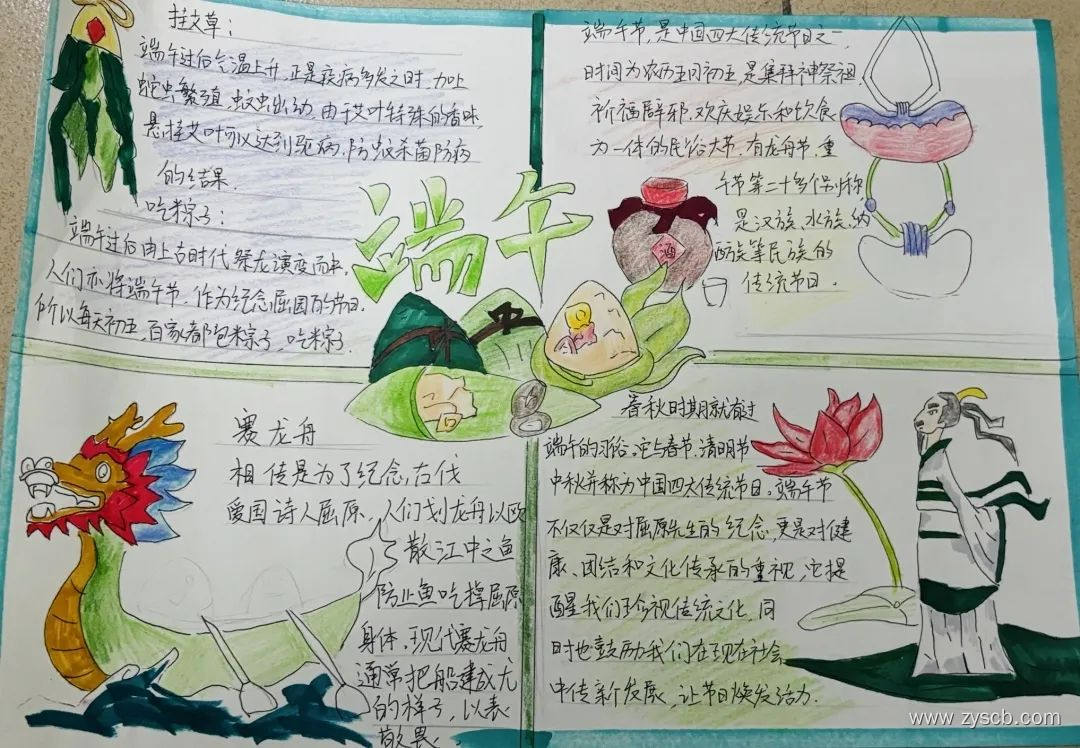 挂艾草：
端午过后气温上升，正是疾病多发之时，加上
蛇虫繁殖，蚊虫出动，由于艾叶特殊的香味，
悬挂艾叶可以达到驱病，防蚊杀菌防病
的结果．
吃粽子：
端午过后由上古时代祭龙演变而中，
人们亦将端午节，作为纪念屈园的节日．
所以每天初五，百家都包粽子，吃粽子．
端午
酒
端午节，是中国四大传统节日之一，
时间为农历五月初五，是集拜神祭祖，
祈福辟邪，欢庆娱乐和饮食
为一体的民俗大节．有龙舟节，重
午节等二十多个别称
是汉族、水族、纳
西族等民族的
传统节日．
赛龙舟
相传是为了纪念，古代
爱国诗人屈原，人们划龙舟以
散江中之鱼
防止鱼吃掉屈原
身体，现代赛龙舟
通常把船建成龙
的样子，以表
敬畏．
春秋时期就有过
端午的习俗．它与春节、清明节
中秋并称为中国四大传统节日。端午节
不仅仅是对屈原先生的纪念，更是对健
康、团结和文化传承的重视，它提
醒我们珍视传统文化，同
时也鼓励我们在现在社会
中传新发展，让节日焕发活力．
www.zyscb.com